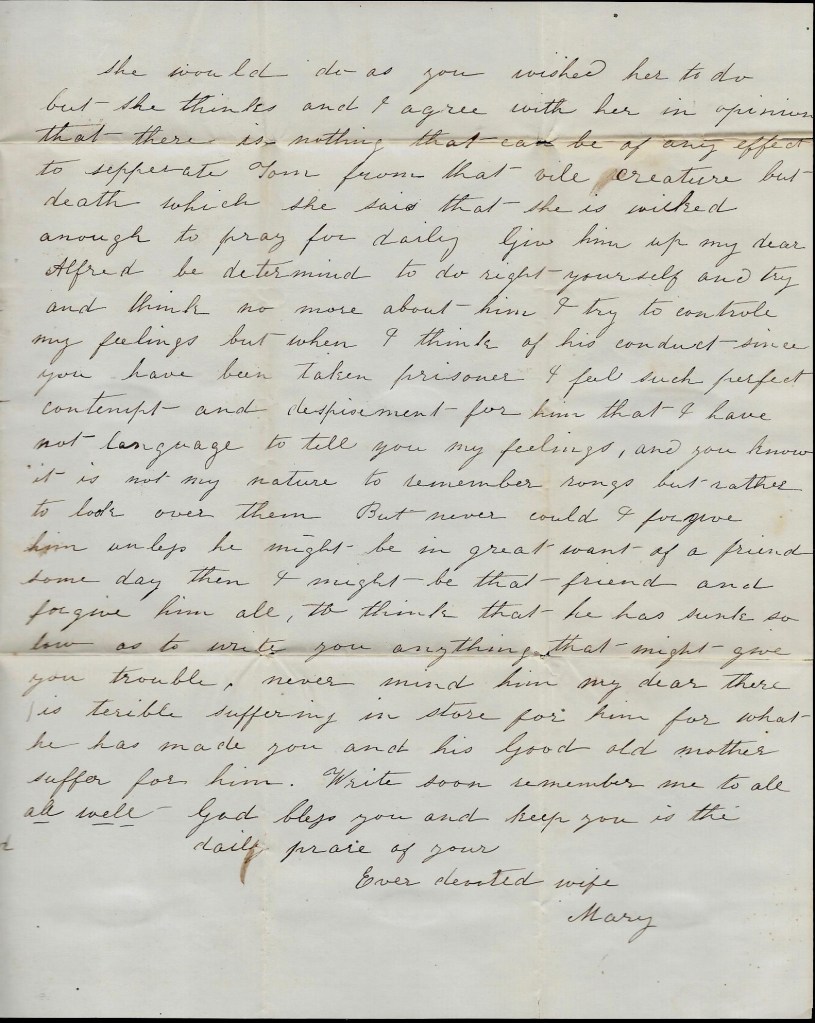 she would do as you wished her to do
but she thinks and I agree with her in opinion
that there is nothing that can be of any effect
to sepperate Tom from that vile creature but
death which she said that she is wicked
anough to pray for daily Give him up my dear
Alfred be determind to do right yourself and try
and think no more about him I try to controle
my feelings but when I think of his conduct since
you have been taken prisoner I feel such perfect
contempt and despisement for him that I have
not language to tell you my feelings, and you know
it is not my nature to remember rongs but rather
to look over them But never could I forgive
him unless he might be in great want of a friend
some day then I might be that friend and
forgive him all, to think that he has sunk so
low as to write you anything that might give
you trouble, never mind him my dear there
is terible suffering in store for him for what
he has made you and his Good old mother
suffer for him. Write soon remember me to all
all well God bless you and keep you is the
daily praie of your
Ever devoted wife
Mary